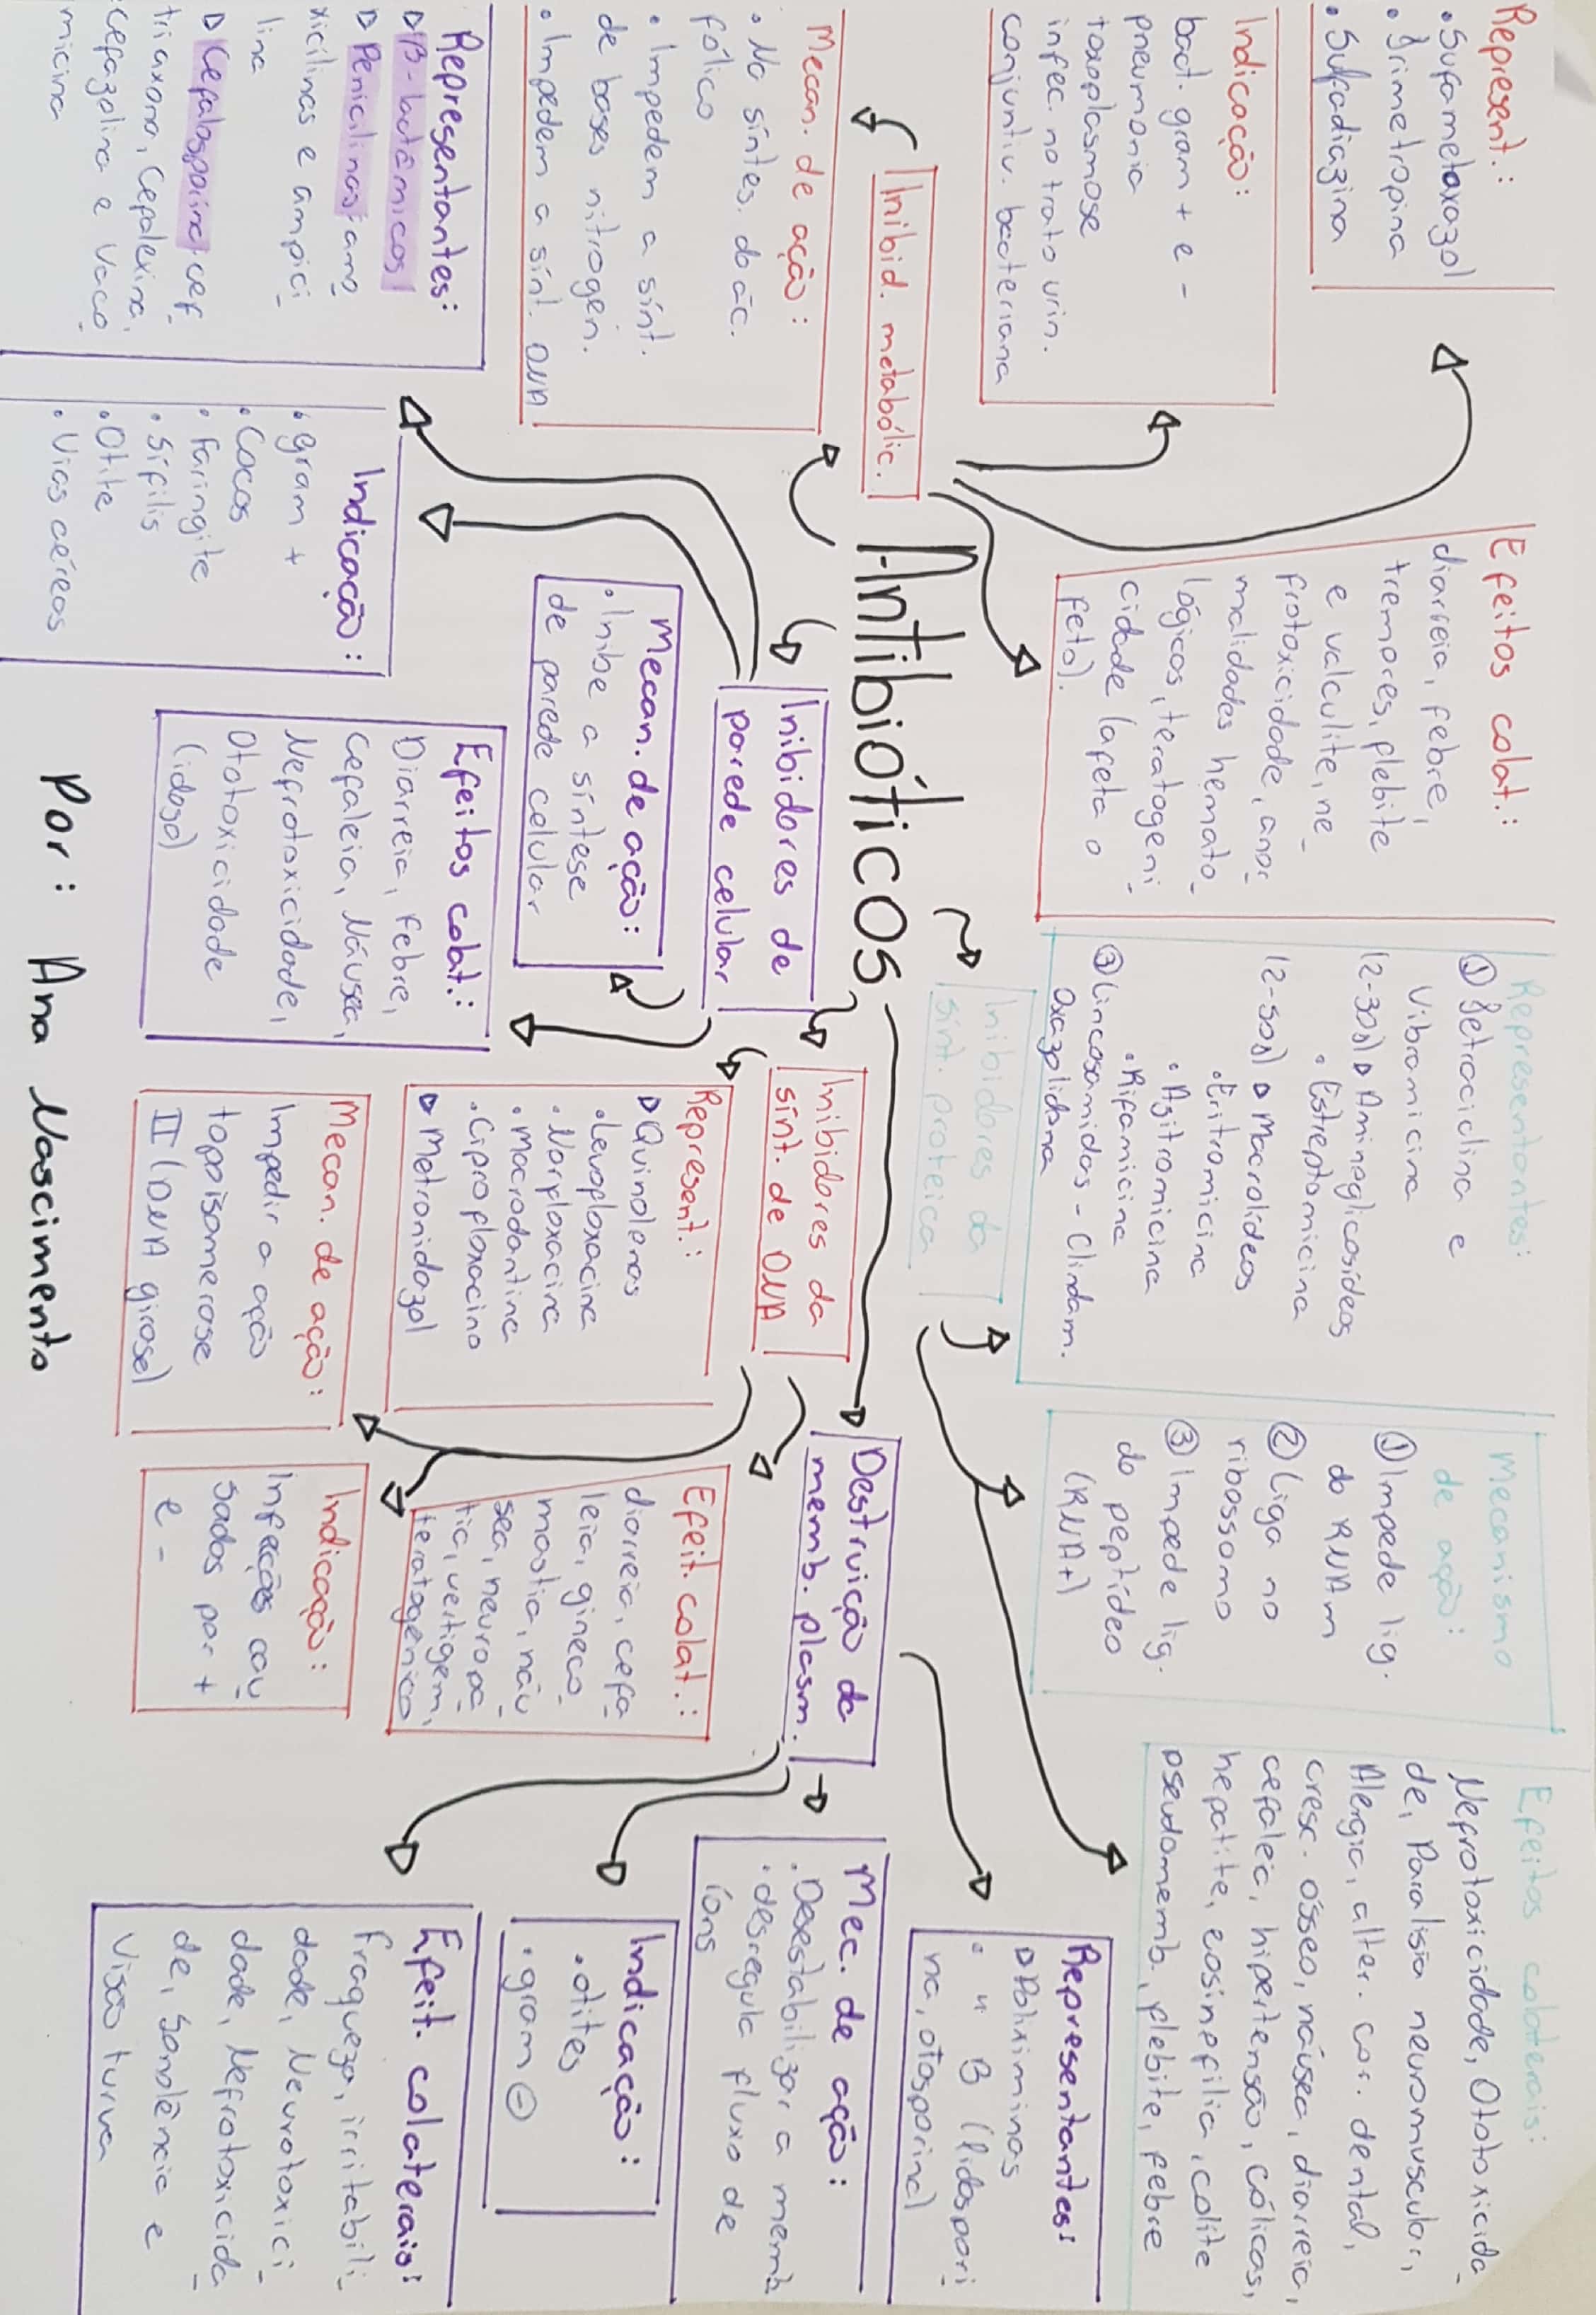 Represent.:
• Sufametoxazol
• Trimetropina
• Sulfadiazina
Indicação:
bact. gram + e -
pneumonia
toxoplasmose
infec. no trato urin.
conjuntiv. bacteriana
Inibid. metabólic.
Mecan. de ação:
• Na síntes. do ác.
fólico
• Impedem a sínt.
de bases nitrogen.
• Impedem a sínt. DNA
Efeitos colat.:
diarreia, febre,
tremores, flebite
e valculite, ne-
frotoxicidade, anor
malidades hemato-
lógicos, teratogeni-
cidade (afeta o
feto).
Antibióticos
Representantes:
① Tetraciclina e
Vibramicina
(2-30s) Aminoglicosídeos
• Estreptomicina
(2-50s) Macrolídeos
• Eritromicina
• Azitromicina
• Rifamicina
③ Lincosamidas - Clindam.
Oxazolidona
Inibidores da
sínt. proteica
Mecanismo
de ação:
① Impede lig.
do RNAm
② Liga no
ribossomo
③ Impede lig.
do peptídeo
(RNAt)
Efeitos colaterais:
Nefrotoxicidade, Ototoxicida-
de, Paralisia neuromuscular,
Alergia, alter. cor. dental,
cresc. ósseo, náusea, diarreia,
cefaleia, hipertensão, cólicas,
hepatite, eosinofilia, colite
pseudomemb., flebite, febre
Inibidores de
parede celular
Representantes:
B-lactâmicos
Penicilinas: amo
xicilinas e ampici
lina
Cefalosporina: cef-
triaxona, Cefalexina,
cefazolina e Vaco
micina
Indicação:
• gram +
• Cocos
• Faringite
• Sífilis
• Otite
• Vias aéreas
Mecan. de ação:
• Inibe a síntese
de parede celular
Efeitos colat.:
Diarreia, Febre,
Cefaleia, Náusea,
Nefrotoxicidade,
Ototoxicidade
(idoso)
Inibidores da
sínt. de DNA
Represent.:
Quinolonas
• Levofloxacina
• Norfloxacina
• Macrodantina
• Ciprofloxacino
Metronidazol
Mecan. de ação:
Impedir a ação
topoisomerase
II (DNA girase)
Efeit. colat.:
diarreia, cefa
leia, gineco
mastia, náu
sea, neuropa
tia, vertigem,
teratogênico
Indicação:
Infecções cau
sadas por +
e -
Destruição da
memb. plasm.
Representantes:
Poliximinas
• " B (lidospori
na, otosporina)
Mec. de ação:
• Desestabilizar a memb
• desregula fluxo de
íons
Indicação:
• otites
• gram ⊖
Efeit. colaterais:
Fraqueza, irritabili-
dade, Neurotoxici-
dade, Nefrotoxicida
de, Sonolência e
Visão turva
Por: Ana Nascimento